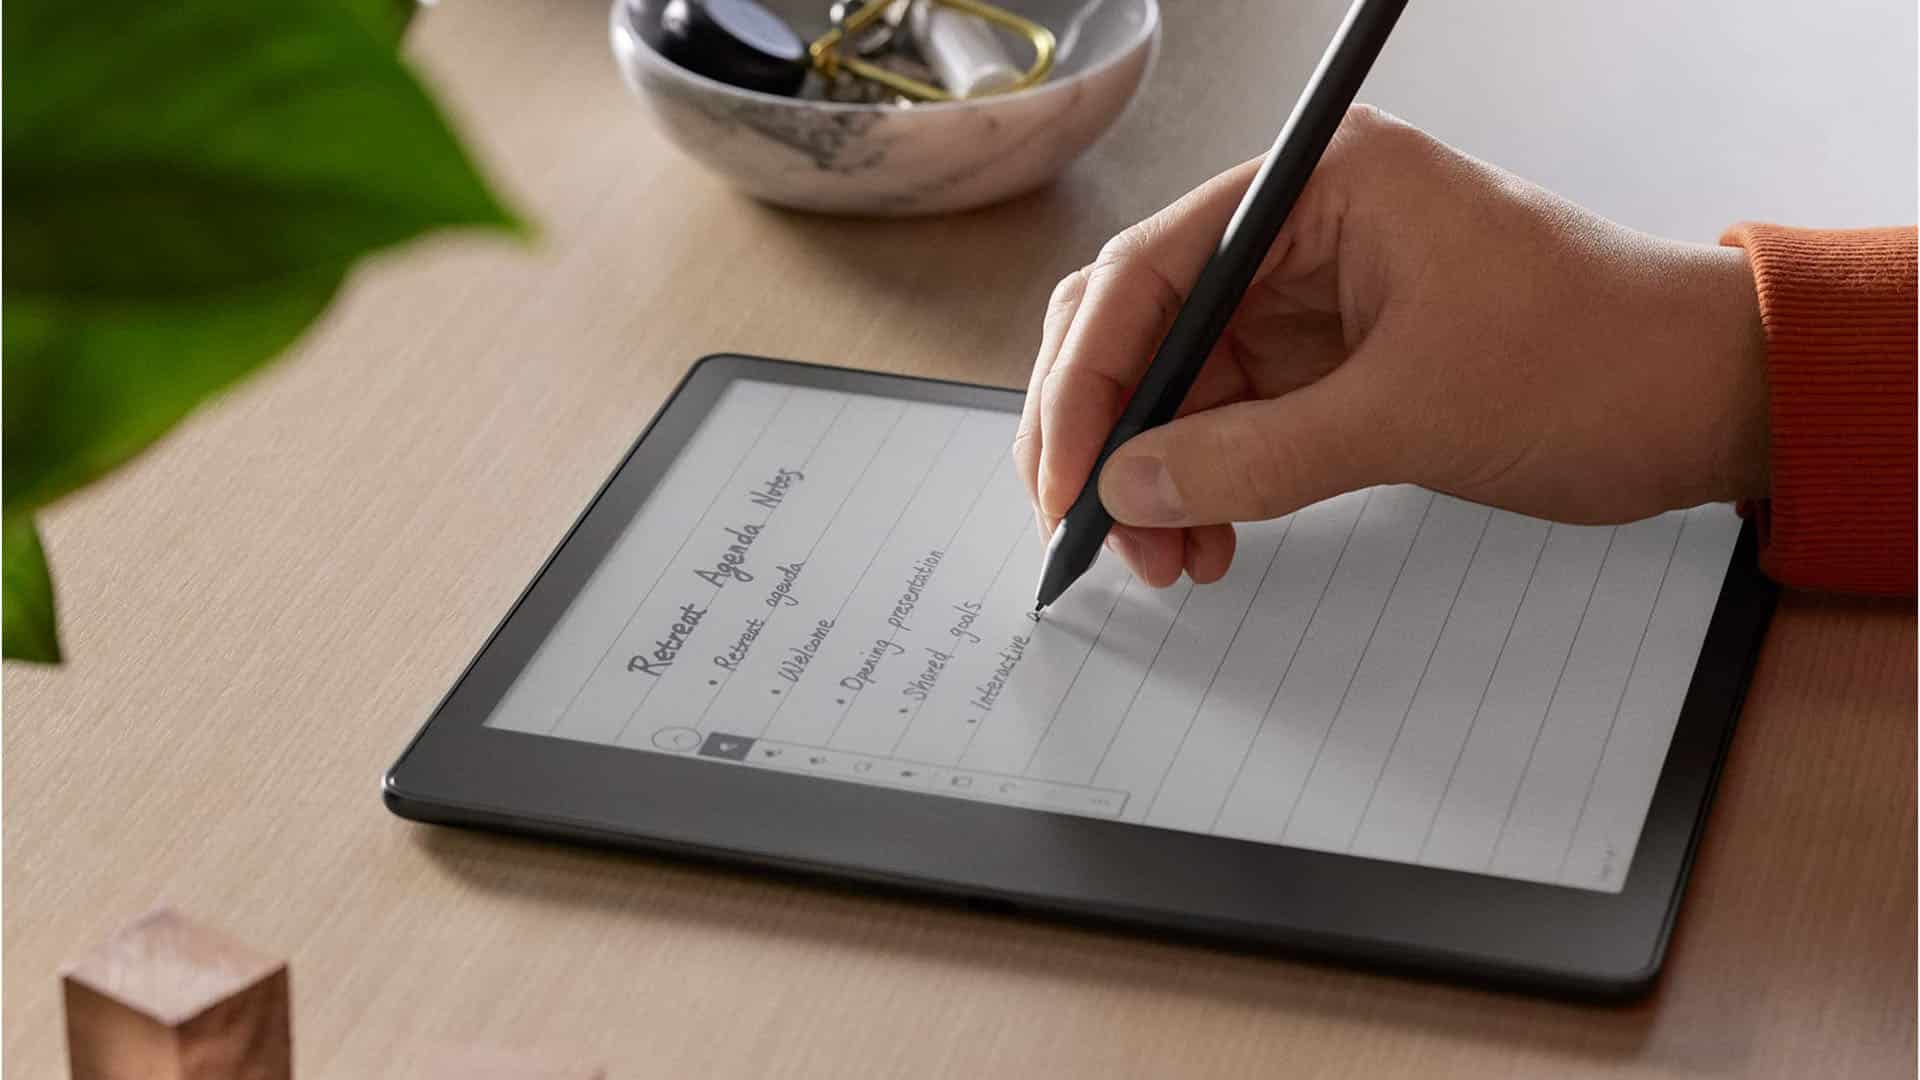 Retreat Agenda Notes
• Retreat agenda
• Welcome
• Opening presentation
• Shared goals
• Interactive a